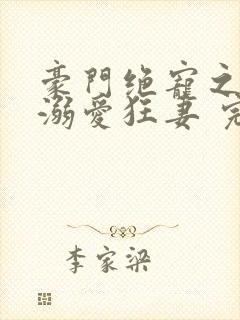 豪門绝寵之
溺爱狂妻 完
李家梁